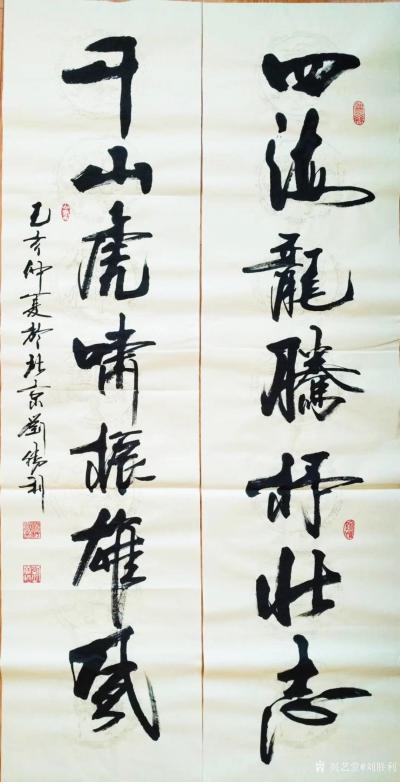 四海龍騰抒壯志
千山虎啸振雄風
己亥仲夏於北京劉勝利
兴艺堂#刘胜利